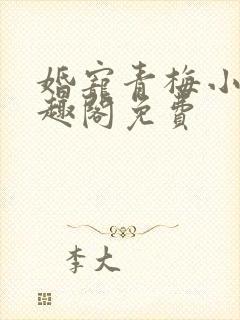 婚宠青梅小
趣阁免费
李大